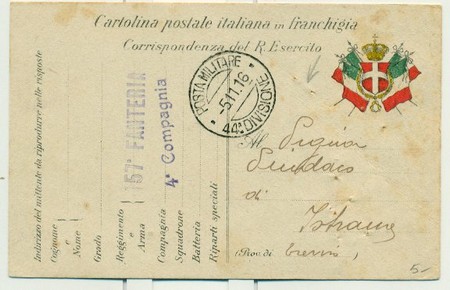 Cartolina postale italiana in franchigia
Corrispondenza del R. Esercito
POSTA MILITARE
5.11.16
44ª DIVISIONE
Indirizzo del mittente da riprodurre nelle risposte
Cognome
e
Nome
Grado
Reggimento
e
Arma
Compagnia
Squadrone
Batteria
Riparti speciali
157ª FANTERIA
4ª Compagnia
Al Signor
Sindaco
di
(Prov. di
5-